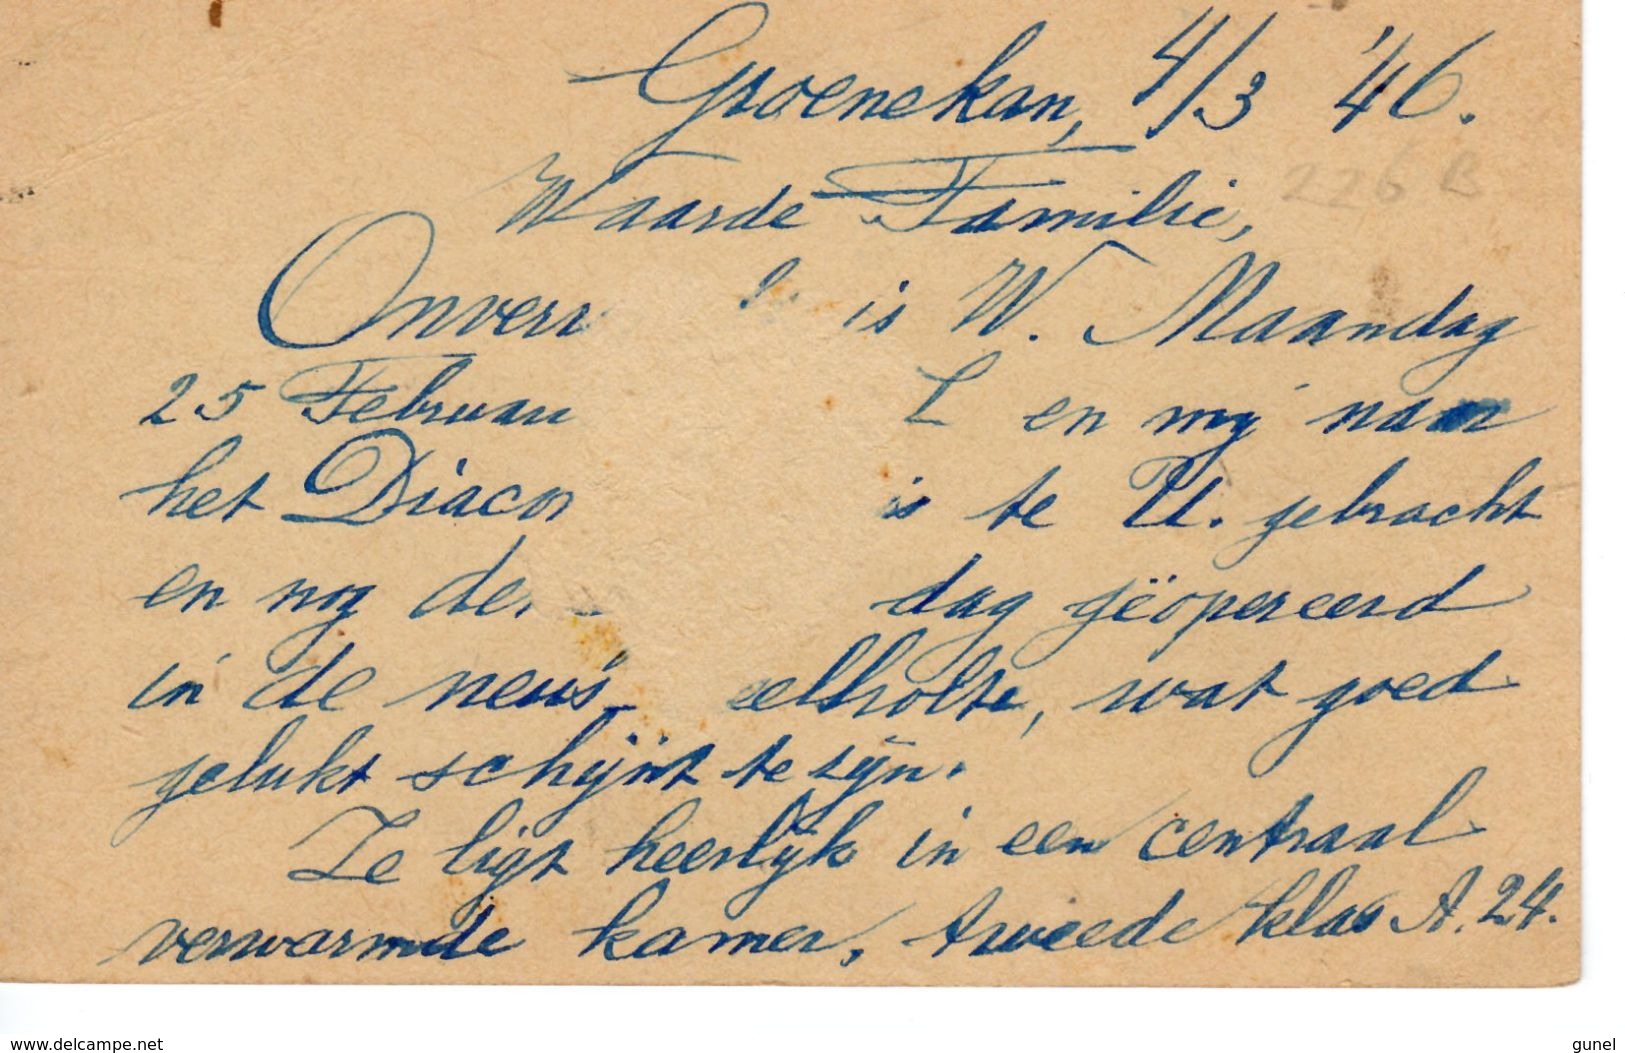 Groenekan, 4/3 '46.
226 B
Waarde Familie,
Onverr is W. Maandag
25 Februari L en mij naar
het Diacon is te U. gebracht
en nog de dag geöpereerd
in de neus- elholte, wat goed
gelukt schijnt te zijn.
Ze ligt heerlijk in een centraal
verwarmde kamer, tweede klas A. 24.
www.delcampe.net
gunel